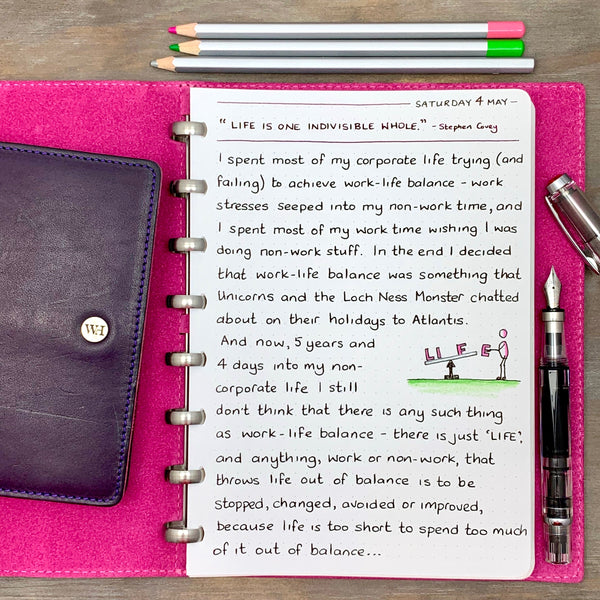 SATURDAY 4 MAY
"LIFE IS ONE INDIVISIBLE WHOLE." - Stephen Covey
I spent most of my corporate life trying (and
failing) to achieve work-life balance - work
stresses seeped into my non-work time, and
I spent most of my work time wishing I was
doing non-work stuff. In the end I decided
that work-life balance was something that
Unicorns and the Loch Ness Monster chatted
about on their holidays to Atlantis.
And now, 5 years and
4 days into my non-
corporate life I still
don't think that there is any such thing
as work-life balance - there is just 'LIFE',
and anything, work or non-work, that
throws life out of balance is to be
stopped, changed, avoided or improved,
because life is too short to spend too much
of it out of balance...
LIFE
WH